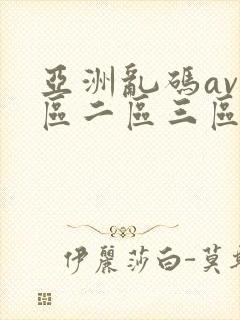 亞洲亂碼av
區二區三區
伊麗莎白-莫